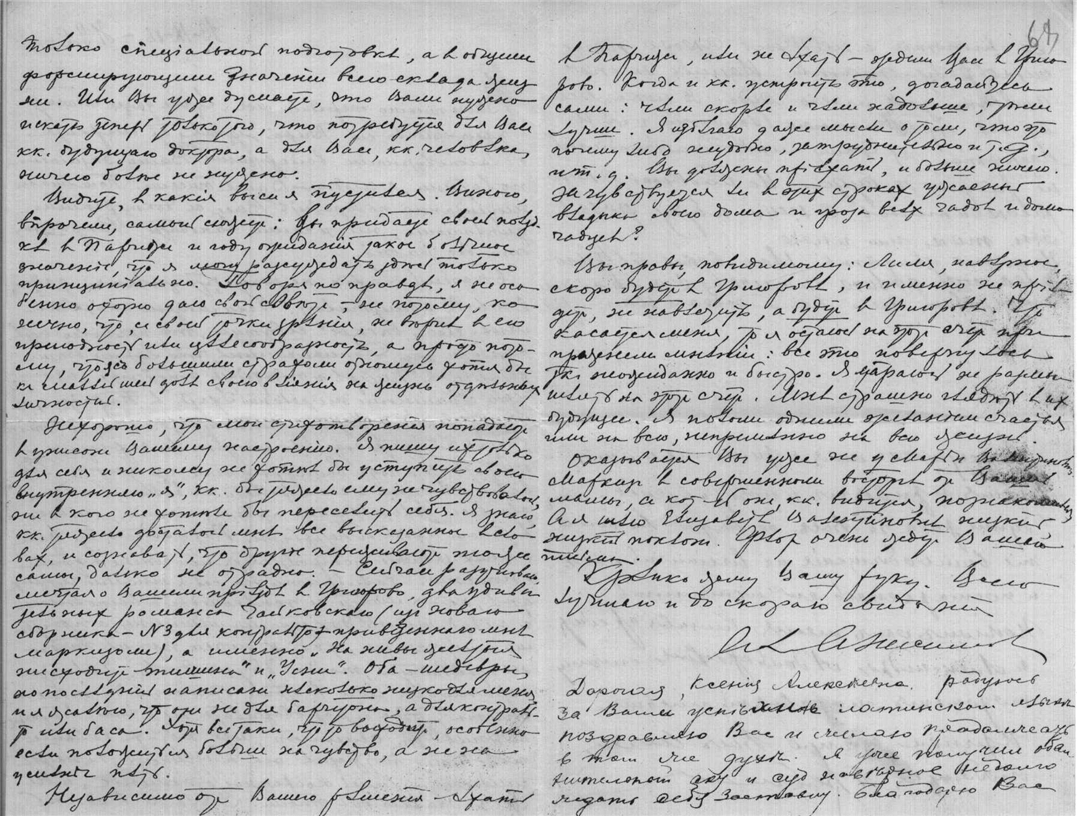 только спеціальной подготовкѣ, а въ общемъ
формирующемъ значеніи всего склада жиз
ни. Или Вы уже думаете, что Вамъ нужно
искать теперь только того, что потребуется для Васъ
кк. будущаго доктора, а для Васъ, кк. человѣка,
ничего болѣе не нужно.
Видите, въ какія выси пустился. Виною,
впрочемъ, самый сюжетъ: Вы придаете своей поѣзд-
кѣ въ Парижъ и году ожиданія такое большое
значеніе, что я могу разсуждать уже только
принципіально. Говоря по правдѣ, я не осо-
бенно охотно даю свой совѣтъ — не потому, ко
нечно, что съ своей точки зрѣнія, не вѣрю въ его
пригодность или цѣлесообразность, а просто пото-
му, что съ большимъ страхомъ отношусь хотя бы
къ малѣйшей долѣ своего вліянія на жизнь отдѣльныхъ
личностей.
Нехорошо, что мои стихотворенія попадаютъ
въ унисонъ Вашему настроенію. Я пишу ихъ только
для себя и никому не хотѣлъ бы уступить своего
внутренняго „я“, кк. бы тяжело ему не чувствовалось,
ни въ кого не хотѣлъ бы переселить себя. Я знаю,
кк. тяжело достались мнѣ все высказанное въ сло
вахъ, и сознавать, что другіе переживаютъ то же
самое, далеко не отрадно. Сейчасъ разучиваю,
мечтая о Вашемъ пріѣздѣ въ Григорово, два удиви
тельныхъ романса Чайковскаго (изъ новаго
сборника — N3 для контральто привезеннаго мнѣ
Маркизомъ), а именно „На нивы желтыя
нисходитъ тишина“ и „Усни“. Оба — шедевры,
но послѣдній написанъ нѣсколько низко для меня
и я жалѣю, что они не для баритона, а для контраль-
то или баса. Хотя все таки, что то выходитъ, особенно
если положиться больше на чувство, а не на
умѣнье пѣть.
Независимо отъ Вашего рѣшенія — ѣхать
64
въ Парижъ, или не ѣхать — ждемъ Васъ въ Григо
рово. Когда и кк. устроить это, догадайтесь
сами: чѣмъ скорѣе и чѣмъ надольше, тѣмъ
лучше. Я избѣгаю даже мысли о томъ, что это
почему либо неудобно, затруднительно и т.д.,
и т.д. Вы должны пріѣхать, и больше ничего.
Не чувствуется ли въ этихъ строкахъ ужасный
владыка своего дома и гроза всѣхъ чадъ и домо
чадцевъ?
Вы правы, повидимому: Лиля, навѣрное,
скоро будетъ въ Григоровѣ, и именно не прі-
детъ, не навѣститъ, а будетъ въ Григоровѣ. Что
касается меня, то я остаюсь на этотъ счетъ при
прежнемъ мнѣніи: все это повернулось
такъ неожиданно и быстро. Я стараюсь не размы
шлять на этотъ счетъ. Мнѣ страшно глядѣть въ ихъ
будущее. Я полонъ однимъ желаніемъ счастья
имъ на всю, непремѣнно на всю жизнь.
Оказывается Вы уже не у смерти
Маркизъ въ совершенномъ восторгѣ отъ Вашей
мамы, съ кот-й онъ, кк. видится, познакомился
А я шлю Елизаветѣ Валентиновнѣ низкій
низкій поклонъ. очень ждетъ Вашего
письма.
Крѣпко жму Вашу руку. Всего
лучшаго и до скораго свиданія
А Анисимов
Дорогая, Ксенія Алексѣевна. Радуюсь
за Ваши успѣхи въ латинскомъ языкѣ
поздравляю Васъ и желаю продолжать
въ томъ же духѣ. Я уже получилъ обви
нительный актъ и судъ навѣрное недолго
ждать себя заставитъ. Благодарю Васъ